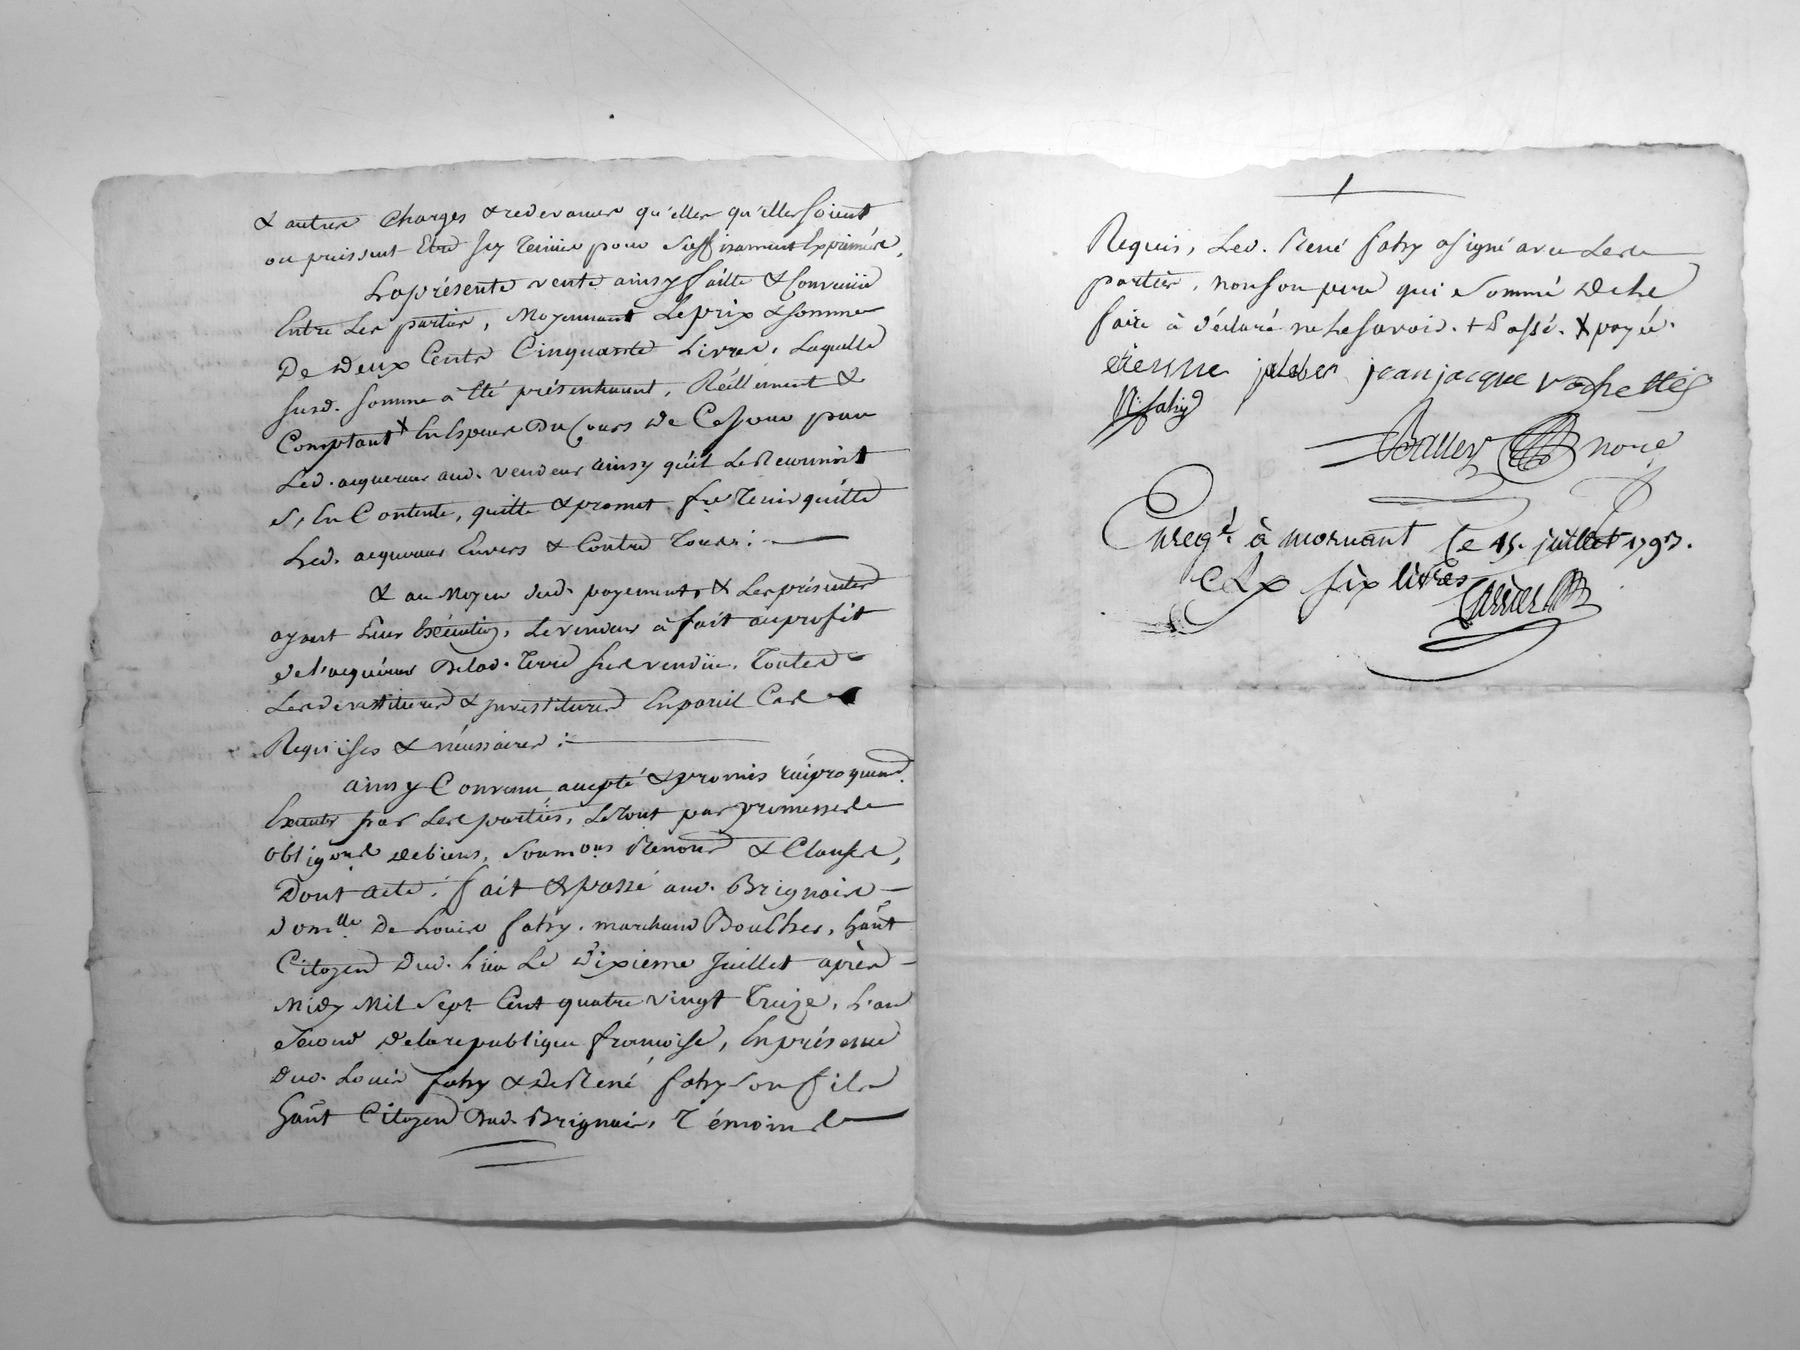 & autres Charges & redevances qu'elles qu'elles soient
ou puissent Etre Icy tenües pour suffisamment Exprimées,
La présente vente ainsy faitte & Convenüe
Entre Les parties, Moyennant Le prix & somme
De Deux Cents Cinquante Livres, Laquelle
susd. somme à Eté présentement, Réellement &
Comptant x En Espèces Du Cours De Ce Jour par
Led. acquereur aud. vendeur ainsy qu'il Le Reconnoit
s'En Contente, quitte & promet fre Tenir quitte
Led. acquereur Envers & Contre Tous :
& au Moyen dud. payement & Les présentes
ayant Leur Exécution, Le vendeur à fait au profit
de l'acquéreur De lad. Terre sus vendüe, Toutes
Les devestitures & Investitures En pareil Cas
Requises & nécessaires :
ainsy Convenu accepté & promis réciproquemt.
Exécuter par Les parties, Le Tout par promesses
obligons de biens, soumons Renons & Clauses,
Dont acte, fait & passé aud. Brignais
domlle De Louis fahy, marchand Boulher, habt
Citoyen Dud. Lieu Le Dixieme Juillet après
Midy Mil Sept Cent quatre vingt Treize, L'an
second De la republique françoise, En présence
Dud. Louis fahy & De René fahy son fils
habt Citoyen Dud. Brignais, Témoins
Requis, Led. René fahy a signé avec Les
parties, non son pere qui sommé De Le
faire à déclaré ne Le savoir. + Passé. x payée.
etienne jean jacque vachette
R. fahy
nore
Enregé à mornant Le 15. juillet 1793.
six livres